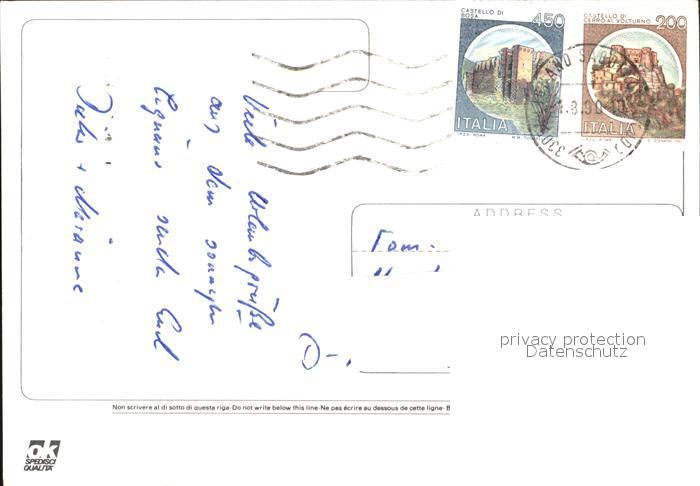 CASTELLO DI
BOSA
450
ITALIA
CASTELLO DI
CERRO AL VOLTURNO
200
ITALIA
Viele Urlaubsgrüße
aus dem sonnigen
Lignano senden Euch
ADDRESS
Fam.
D-.
privacy protection
Datenschutz
Non scrivere al di sotto di questa riga-Do not write below this line-Ne pas écrire au dessous de cette ligne-
ok
SPEDISCI
QUALITA'